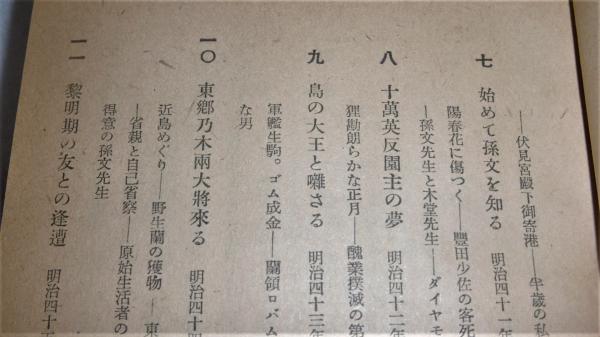 ——伏見宮殿下御寄港——半歳の私
七 始めて孫文を知る 明治四十一年
陽春花に傷つく——豐田少佐の客死
——孫文先生と木堂先生——ダイヤモ
八 十萬英反園主の夢 明治四十二年
狸勘朗らかな正月——醜業撲滅の第
九 島の大王と囃さる 明治四十三年
軍艦生駒。ゴム成金——蘭領ロバム
な男
一〇 東鄕乃木兩大將來る 明治四十四
近島めぐり——野生蘭の獲物——東
——省親と自己省察——原始生活者の
得意の孫文先生
一一 黎明期の友との逢遭 明治四十五